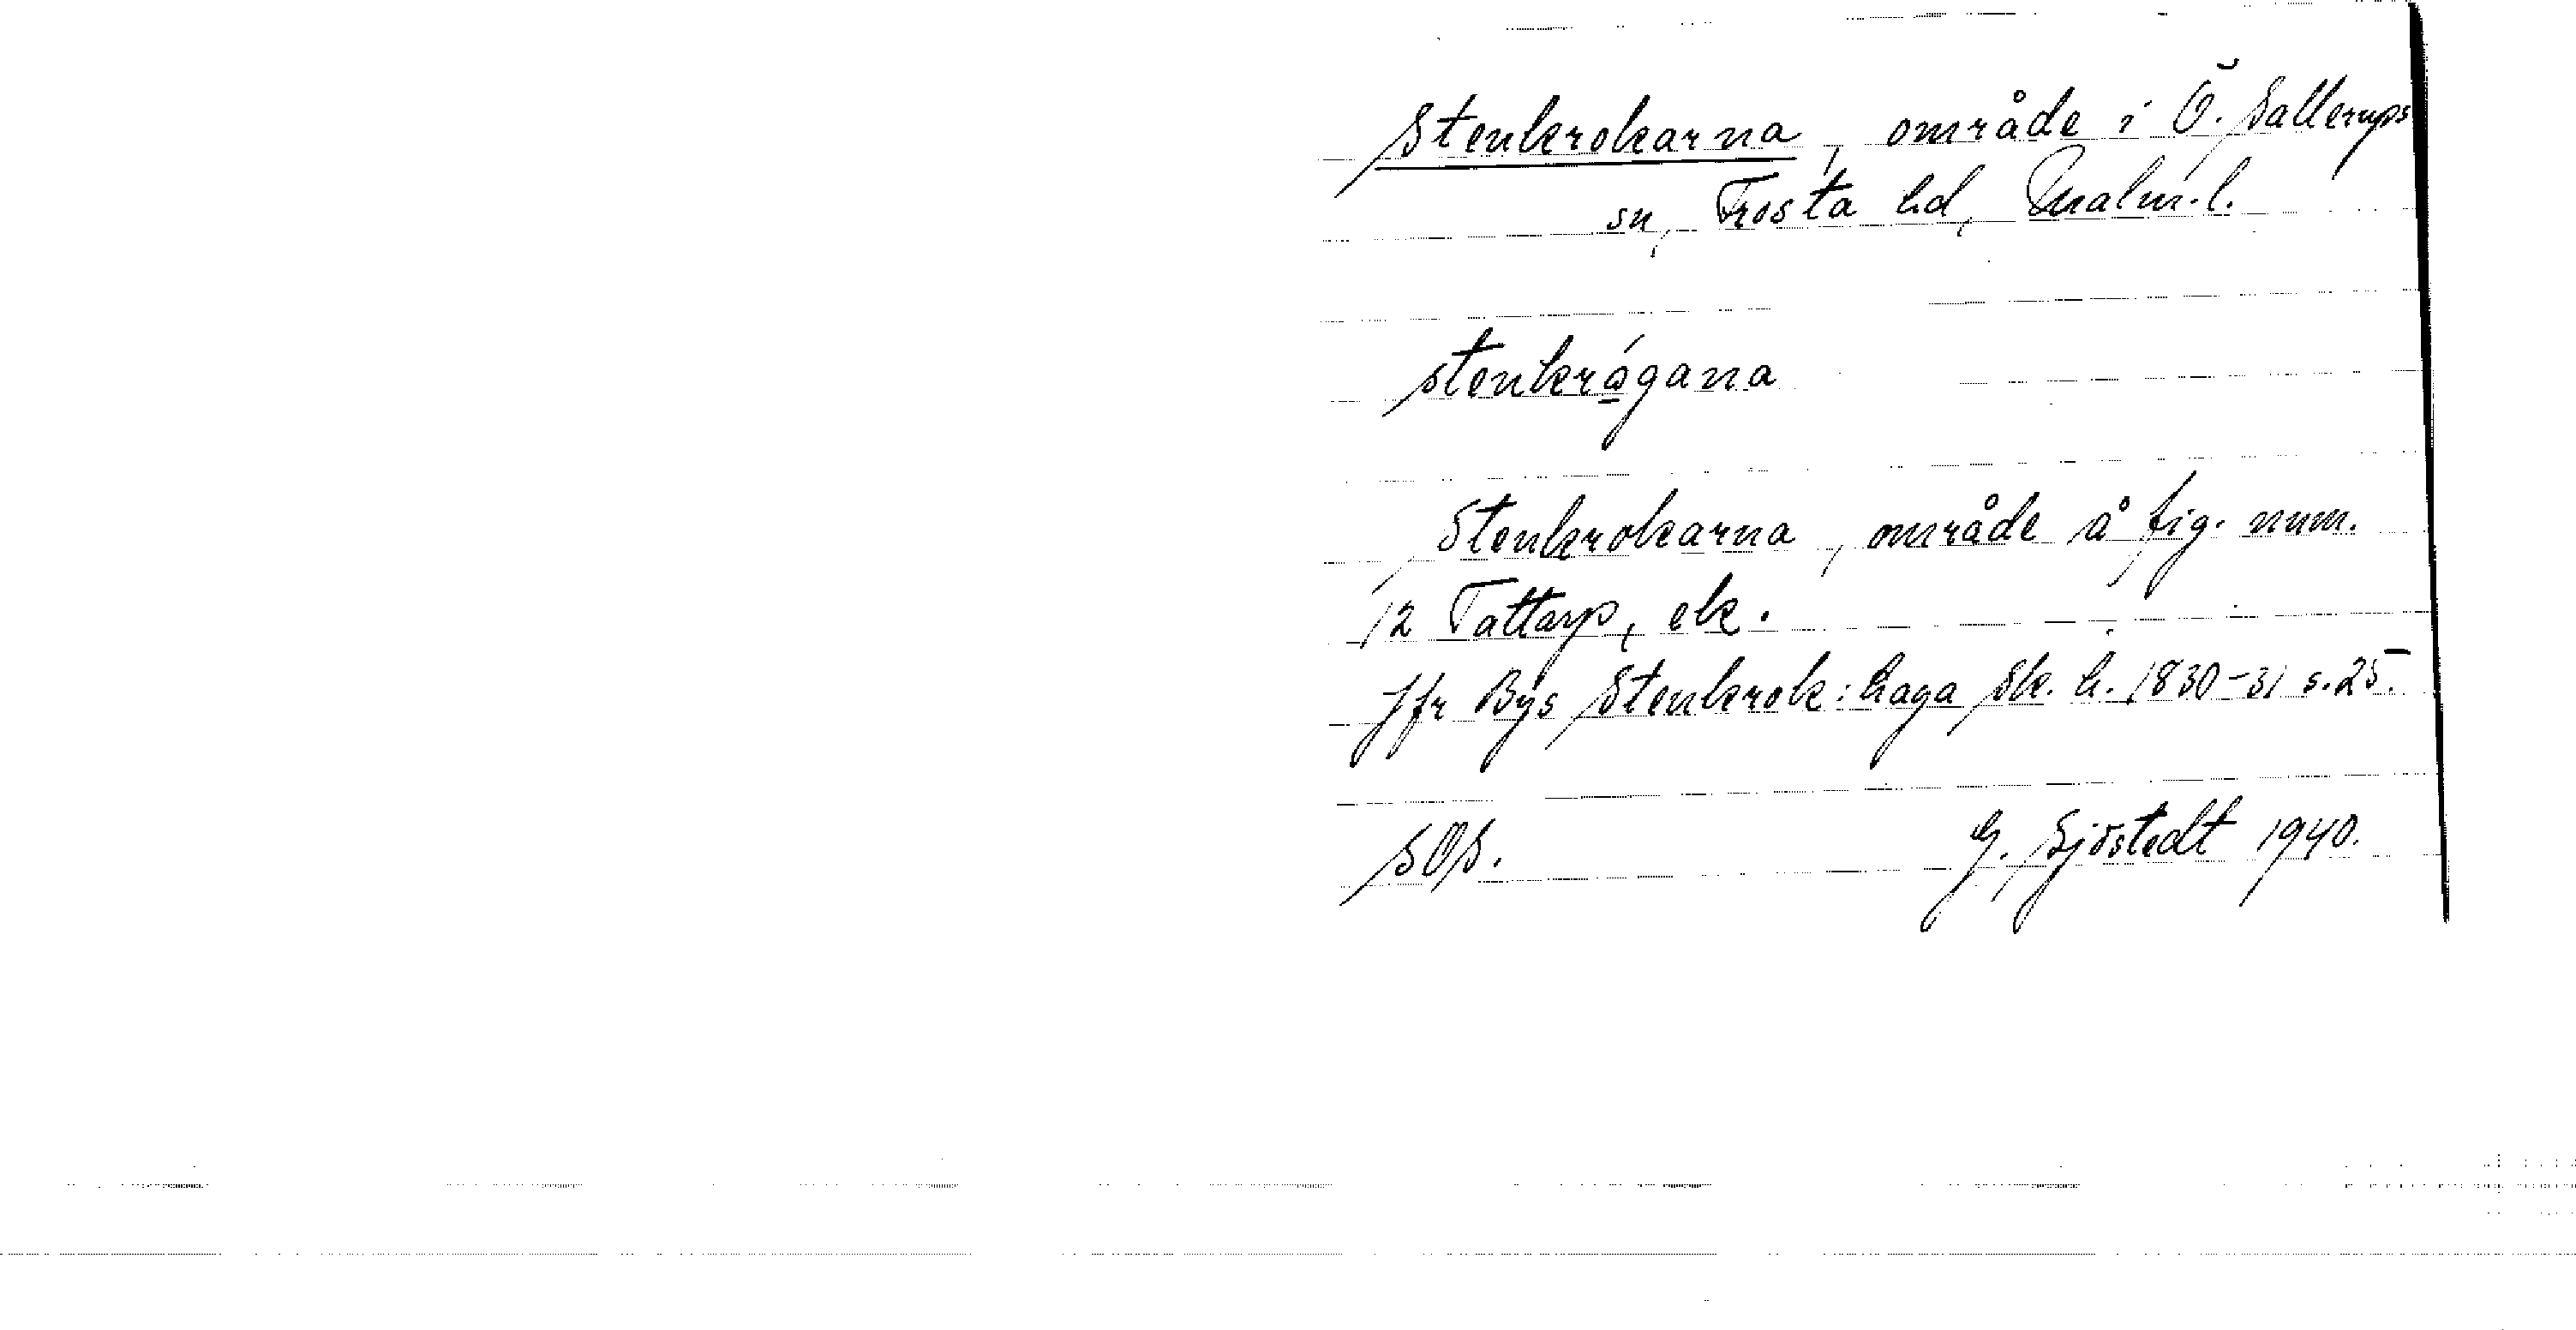 Stenkrokarna, område i Ö. Sallerups
sn, Frosta hd, Malm. l.
stenkrågana
Stenkrokarna, område å fig. num.
12 Tattarp, ek.
Jfr Bys Stenkrok: haga Sk. h. 1830-31 s. 25.
SOS. G. Sjöstedt 1940.